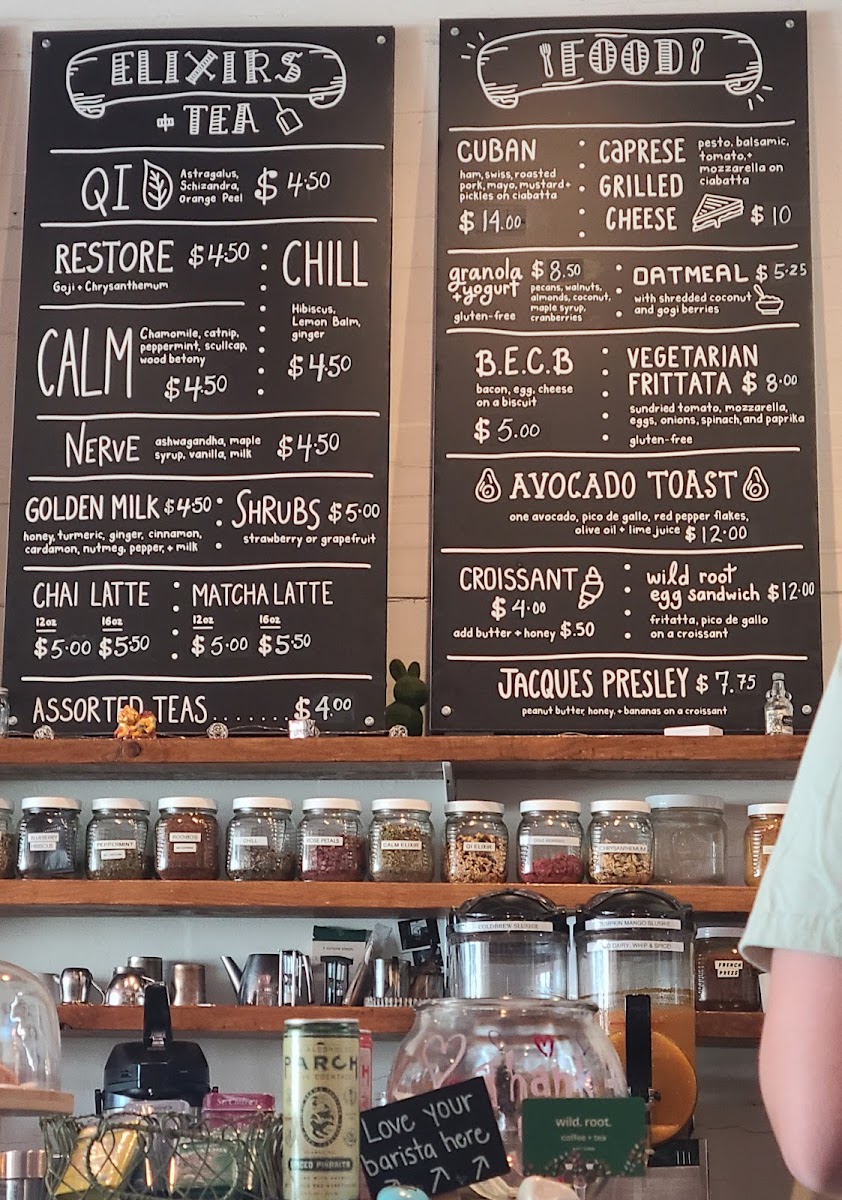 ELIXIRS
+ TEA
QI
Astragalus,
Schizandra,
Orange Peel
$ 4.50
RESTORE $4.50
Goji + Chrysanthemum
CHILL
Hibiscus,
Lemon Balm,
ginger
$4.50
CALM
Chamomile, catnip,
peppermint, scullcap,
wood betony
$4.50
NERVE
ashwagandha, maple
syrup, vanilla, milk
$4.50
GOLDEN MILK $4.50
honey, turmeric, ginger, cinnamon,
cardamon, nutmeg, pepper, + milk
SHRUBS $5.00
strawberry or grapefruit
CHAI LATTE
12oz 16oz
$5.00 $5.50
MATCHA LATTE
12oz 16oz
$5.00 $5.50
ASSORTED TEAS.......$4.00
FOOD
CUBAN
ham, swiss, roasted
pork, mayo, mustard +
pickles on ciabatta
$14.00
CAPRESE
GRILLED
CHEESE
pesto, balsamic,
tomato, +
mozzarella on
ciabatta
$10
granola
+ yogurt
gluten-free
$8.50
pecans, walnuts,
almonds, coconut,
maple syrup,
cranberries
OATMEAL $5.25
with shredded coconut
and gogi berries
B.E.C.B
bacon, egg, cheese
on a biscuit
$5.00
VEGETARIAN
FRITTATA $8.00
sundried tomato, mozzarella,
eggs, onions, spinach, and paprika
gluten-free
AVOCADO TOAST
one avocado, pico de gallo, red pepper flakes,
olive oil + lime juice $12.00
CROISSANT
$4.00
add butter + honey $.50
wild root
egg sandwich $12.00
fritatta, pico de gallo
on a croissant
JACQUES PRESLEY $7.75
peanut butter, honey, + bananas on a croissant
BLUEBERRY
HIBISCUS
PEPPERMINT
ROOIBOS
CHILL
ROSE PETALS
CALM ELIXIR
QI ELIXIR
CHRYSANTHEMUM
COLDBREW SLUSHIE
PUMPKIN MANGO SLUSHIE
NO DAIRY, WHIP & SPICE
FRENCH
PRESS
PARCH
SPICED PIÑARITA
Thank
Love your
barista here
wild. root.
coffee + tea